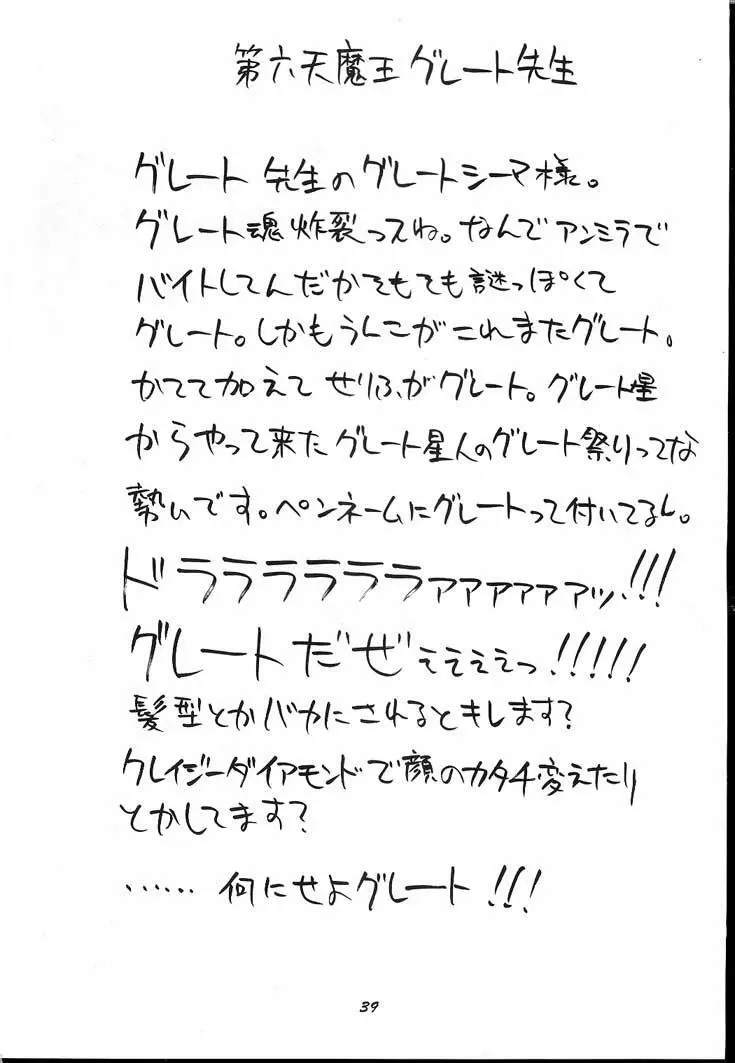 第六天魔王グレート先生
グレート先生のグレートシーマ様。
グレート魂炸裂っスね。なんでアンミラで
バイトしてんだかそもそも謎っぽくて
グレート。しかもうんこがこれまたグレート。
かてて加えてせりふがグレート。グレート星
からやって来たグレート星人のグレート祭りってな
勢いです。ペンネームにグレートって付いてるし。
ドラララララァァァァァァッ!!!
グレートだぜぇぇぇぇっ!!!!!
髪型とかバカにされるとキレます?
クレイジーダイアモンドで顔のカタチ変えたり
とかしてます?
……何にせよグレート!!!
39